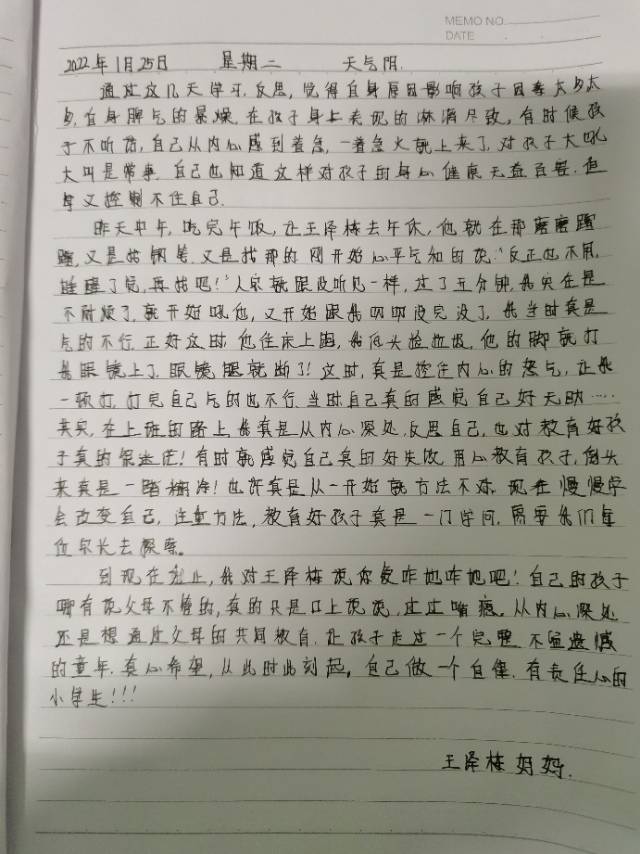 MEMO NO.
DATE
2022年1月25日 星期二 天气阴.
通过这几天学习.反思,觉得自身原因影响孩子因素太多太
多,自身脾气的暴燥.在孩子身上表现的淋漓尽致,有时候孩
子不听话,自己从内心感到着急,一着急火就上来了,对孩子大吼
大叫是常事.自己也知道这样对孩子的身心健康无益百害.但
又控制不住自己.
昨天中午,吃完午饭,让王泽栋去午休,他就在那磨磨蹭
蹭,又是找钢笔.又是找那的.刚开始心平气和的说:“反正也不用,
睡醒了觉,再找吧!”人家就跟没听见一样,过了五分钟,我实在是
不耐烦了,就开始吼他,又开始跟我叨叨没完没了,我当时真是
气的不行.正好这时他往床上跑,我低头捡垃圾,他的脚就打
我眼镜上了,眼镜腿就断了!这时,真是控住内心的怒气,让我
一顿打,打完自己气的也不行.当时自己真的感觉自己好无助……
其实,在上班的路上,我真是从内心深处,反思自己,也对教育好孩
子真的很迷茫!有时就感觉自己真的好失败.用心教育孩子,倒头
来真是一踏糊涂!也许真是从一开始就方法不对.现在慢慢学
会改变自己,注重方法,教育好孩子真是一门学问,需要我们每
位家长去探索。
到现在为止,我对王泽栋说你爱咋地咋地吧!自己的孩子
哪有说父母不管的,真的只是口上说说,过过嘴瘾.从内心深处
还是想通过父母的共同教育,让孩子走过一个完整.不留遗憾
的童年.真心希望,从此时此刻起,自己做一个自律.有责任心的
小学生!!!
王泽栋妈妈.